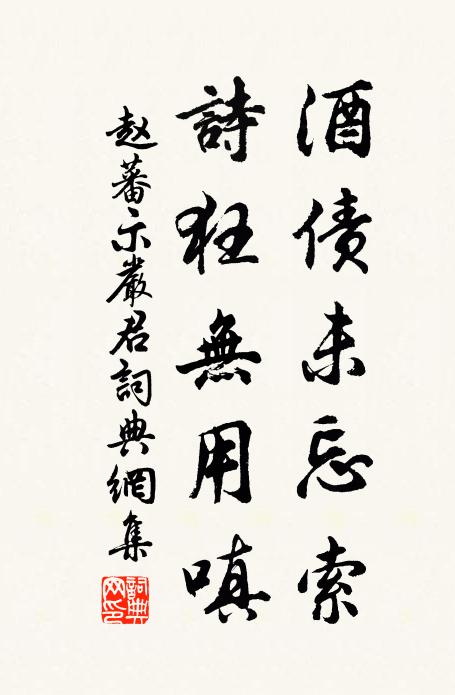 酒债未忘索
詩狂無用嗔
赵蕃示嚴君詞典網集
詞典網印